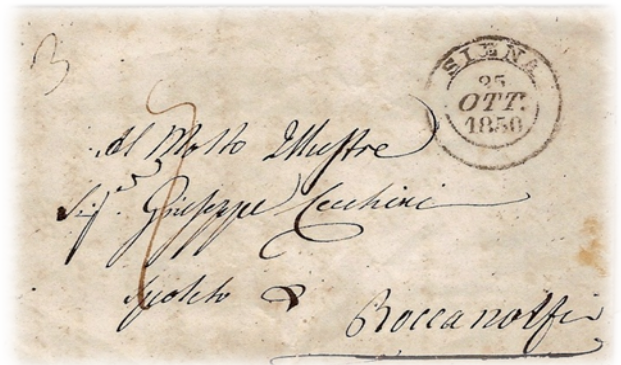 3
SIENA
25
OTT.
1850
Al Molto Illustre
Sig.r Giuseppe Cecchini
Spoleto
Roccanolfi